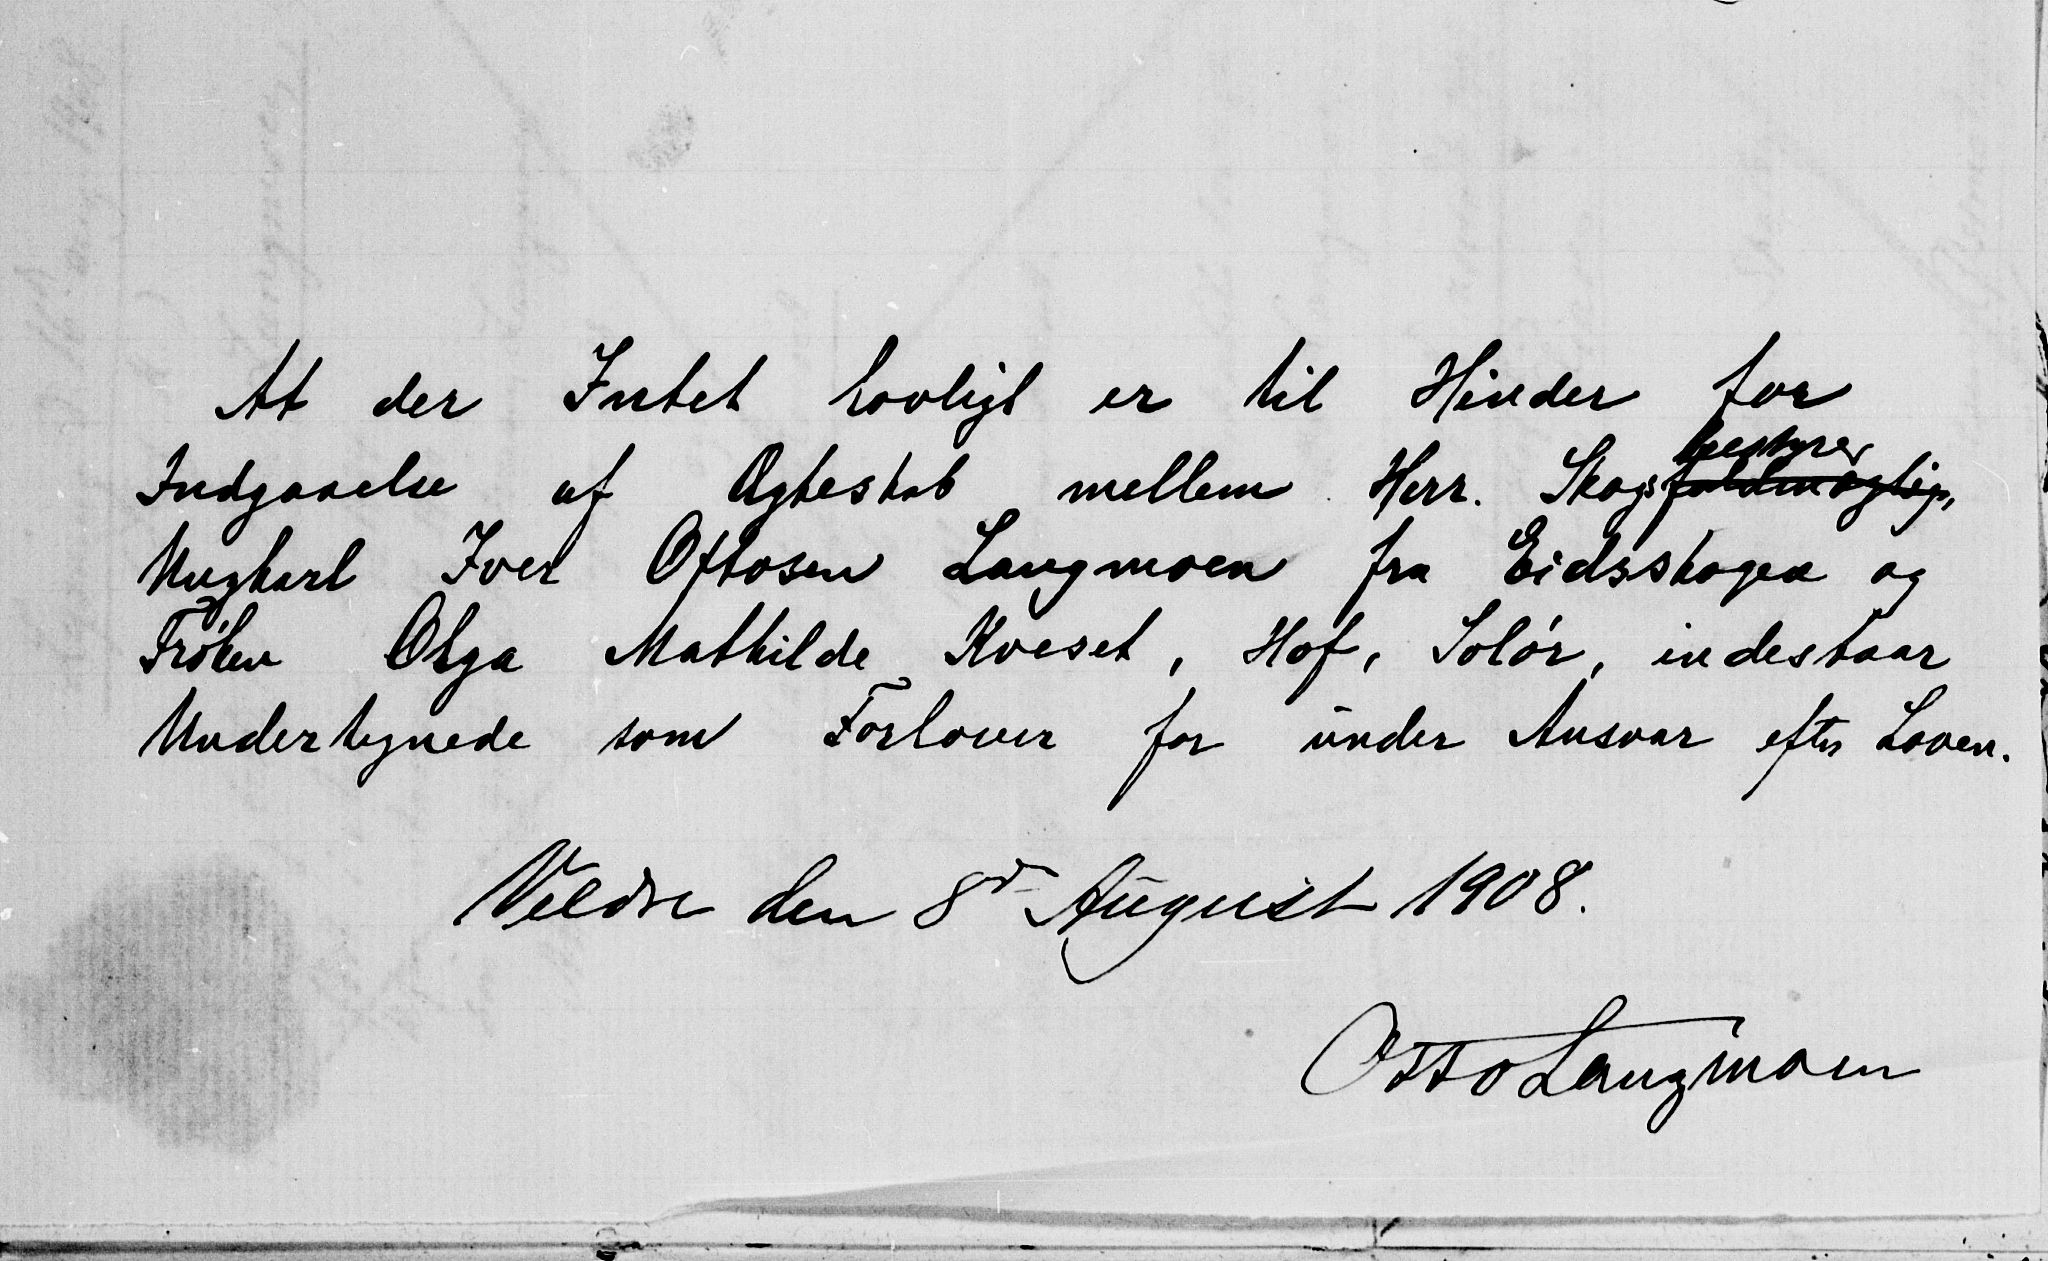 At der Intet lovligt er til Hinder for
Indgaaelse af Ægteskab mellem Herr. Skogsbestyrer
Ungkarl Iver Ottosen Langmoen fra Eidsskogen og
Frøken Olga Mathilde Kveset, Hof, Solør, indestaar
Undertegnede som Forlover for under Ansvar efter Loven.
Veldre den 8de August 1908.
Otto Langmoen